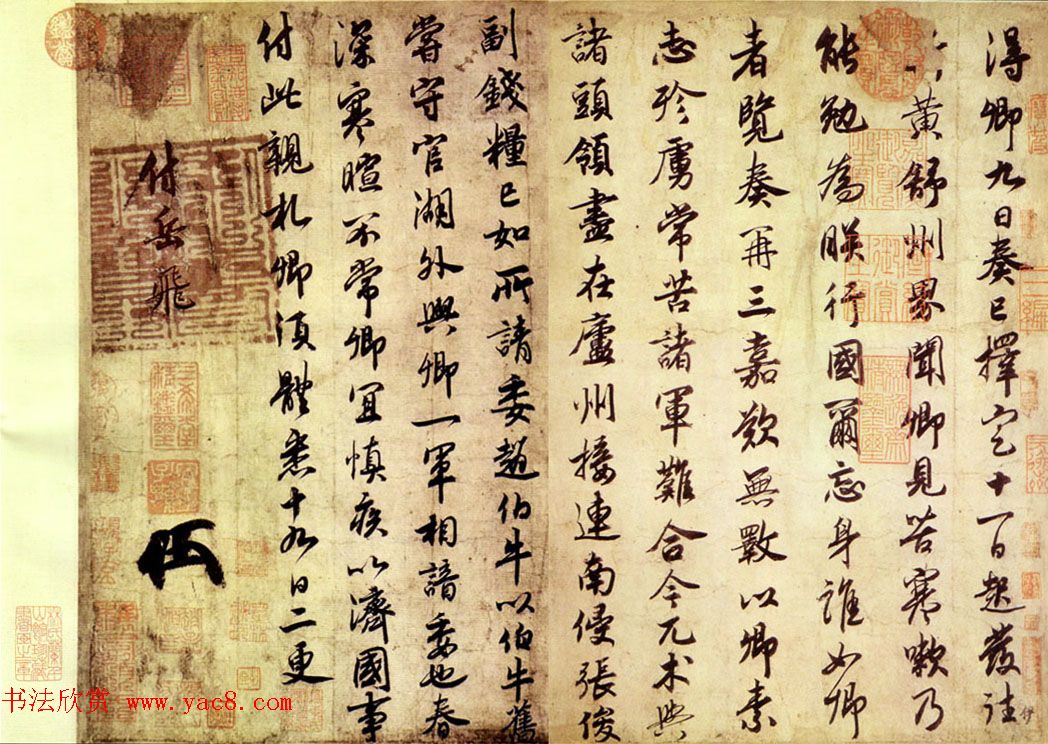 得卿九日奏已擇定十一日起發往
黃舒州界聞卿見苦寒嗽乃
能勉為朕行國爾忘身誰如卿
者覽奏再三嘉歎無斁以卿素
志殄虜常苦諸軍難合今兀术與
諸頭領盡在廬州接連南侵張俊
副錢糧已如所請委趙伯牛以伯牛舊
嘗守官湖外與卿一軍相諳委也春
深寒暄不常卿宜慎疾以濟國事
付此親札卿須體悉十九日二更
付岳飛
书法欣赏 www.yac8.com